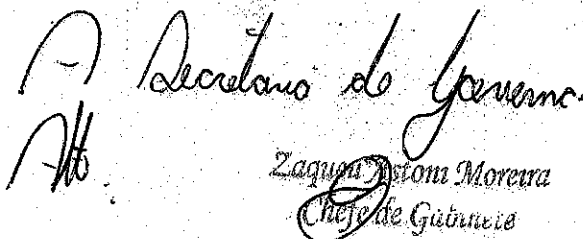 A Secretaria de Governo
Att.
Zaqueu Astoni Moreira
Chefe de Gabinete